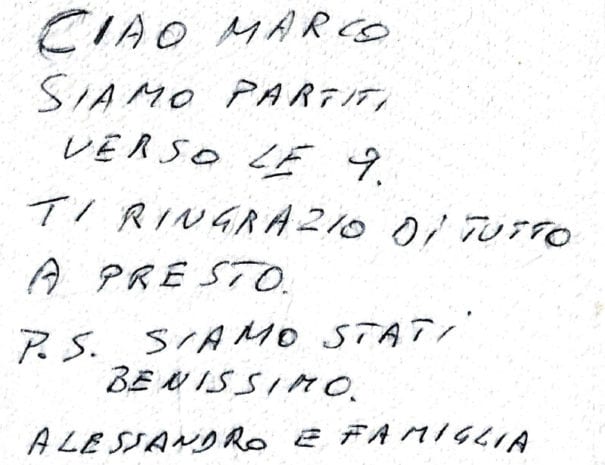 CIAO MARCO
SIAMO PARTITI
VERSO LE 9.
TI RINGRAZIO DI TUTTO
A PRESTO.
P.S. SIAMO STATI
BENISSIMO.
ALESSANDRO E FAMIGLIA